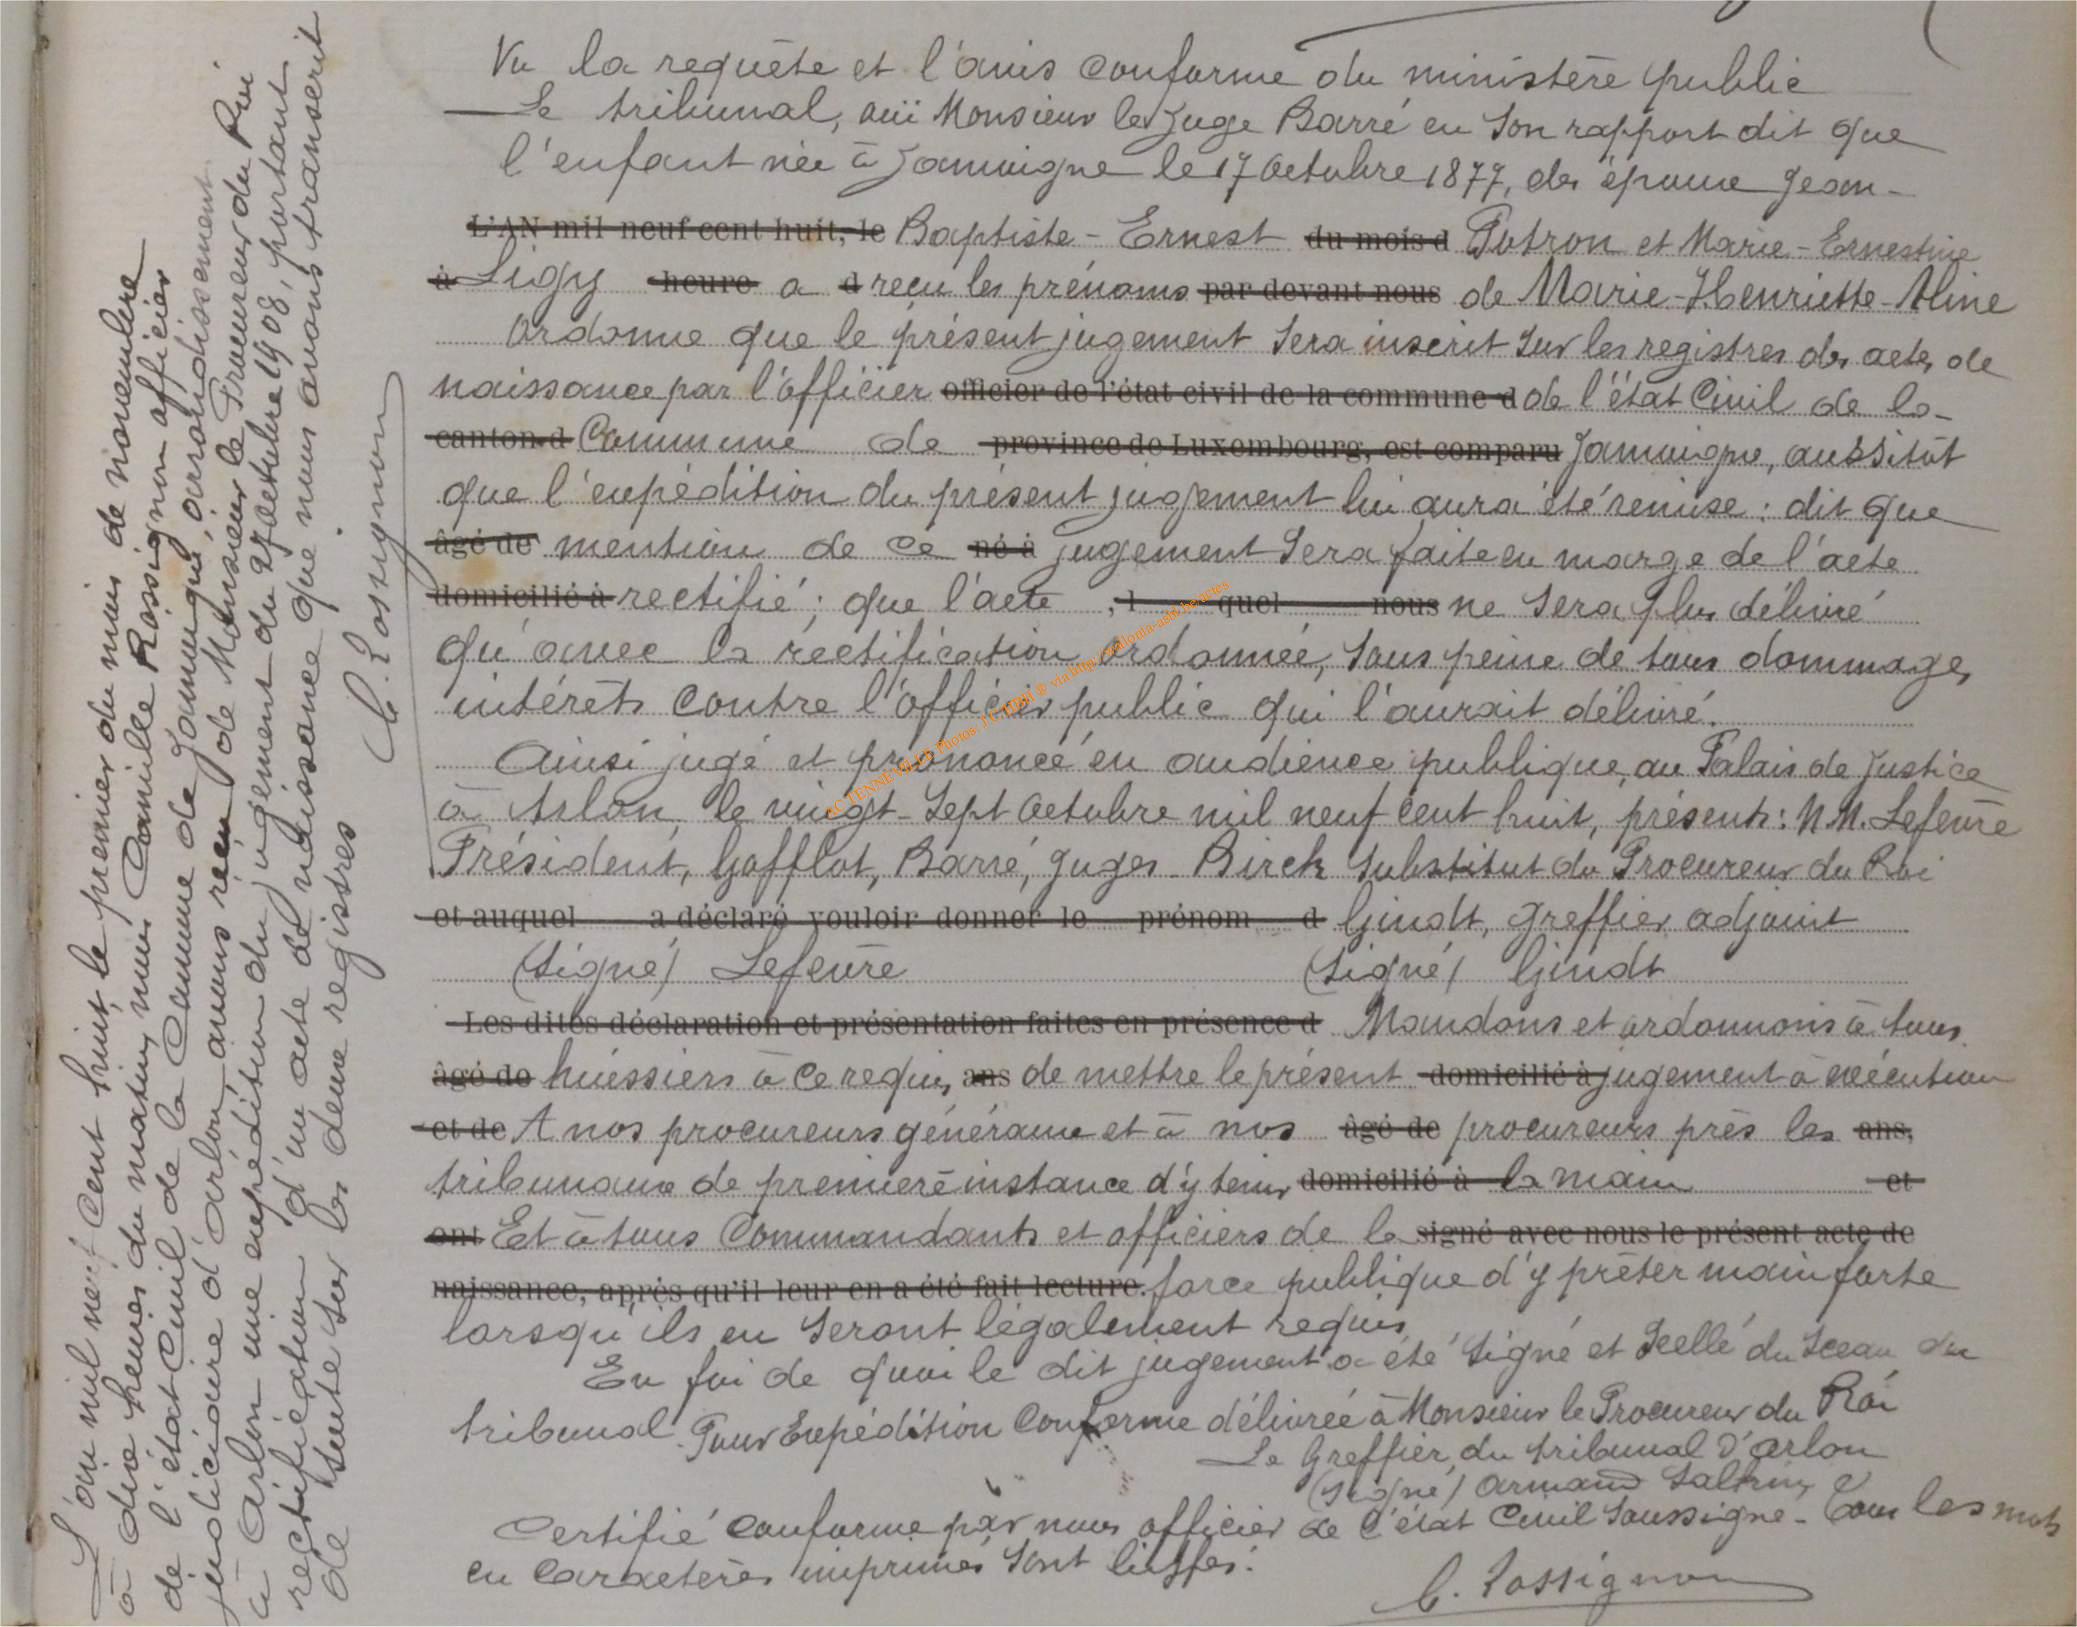 L'an mil neuf cent huit, le premier du mois de novembre
à dix heures du matin, nous Camille Rossignon officier
de l'état civil de la Commune de Jamoigne, arrondissement
judiciaire d'Arlon, avons reçu de Monsieur le Procureur du Roi
à Arlon une expédition du jugement du 27 octobre 1908, portant
rectification d'un acte de naissance que nous avons transcrit
de suite sur les deux registres
C. Rossignon
Vu la requête et l'avis conforme du ministère public
Le tribunal, ouï Monsieur le Juge Barré en son rapport dit que
l'enfant née à Jamoigne le 17 octobre 1877, des époux Jean-
L'AN mil neuf cent huit, le Baptiste - Ernest du mois d Potron et Marie - Ernestine
à Ligy heure a d reçu les prénoms par devant nous de Marie-Henriette-Aline
ordonne que le présent jugement sera inscrit sur les registres des actes de
naissance par l'officier officier de l'état civil de la commune d de l'état Civil de la
canton d Commune de province de Luxembourg, est comparu Jamoigne, aussitôt
que l'expédition du présent jugement lui aura été remise : dit que
âgé de mention de ce né à jugement sera faite en marge de l'acte
domicilié à rectifié ; que l'acte , l quel nous ne sera plus délivré
qu'avec la rectification ordonnée, sous peine de tous dommages
intérêts contre l'officier public qui l'aurait délivré.
Ainsi jugé et prononcé en audience publique, au Palais de Justice
à Arlon, le vingt-sept octobre mil neuf cent huit, présents : M.M. Lefevre
Président, Gofflot, Barré, Juges - Birck Substitut du Procureur du Roi
et auquel a déclaré vouloir donner le prénom d Gindt, greffier adjoint
(signé) Lefevre (signé) Gindt
Les dites déclaration et présentation faites en présence d Mandons et ordonnons à tous
âgé de huissiers à ce requis, ans de mettre le présent domicilié à jugement à exécution
et de A nos procureurs généraux et à nos âgé de procureurs près les ans,
tribunaux de première instance d'y tenir domicilié à la main et
ont Et à tous Commandants et officiers de la signé avec nous le présent acte de
naissance, après qu'il leur en a été fait lecture. force publique d'y prêter main forte
lorsqu'ils en seront légalement requis
En foi de quoi le dit jugement a été signé et scellé du sceau du
tribunal. Pour Expédition Conforme délivrée à Monsieur le Procureur du Roi
Le Greffier du tribunal d'Arlon
(signé) Armand
Certifié conforme par nous officier de l'état Civil soussigné - Tous les mots
en caractères imprimés sont biffés.
C. Rossignon
AC TENNEVILLE Photos: J.C.HBH © via http://walonia-asbl.be/actes